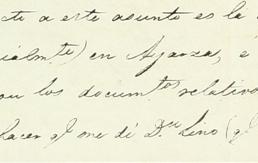 cto a este asunto es la
ialmte) en Ayanza, e
on los documtos relativo
hacer qe me dé Dn Lino (qe